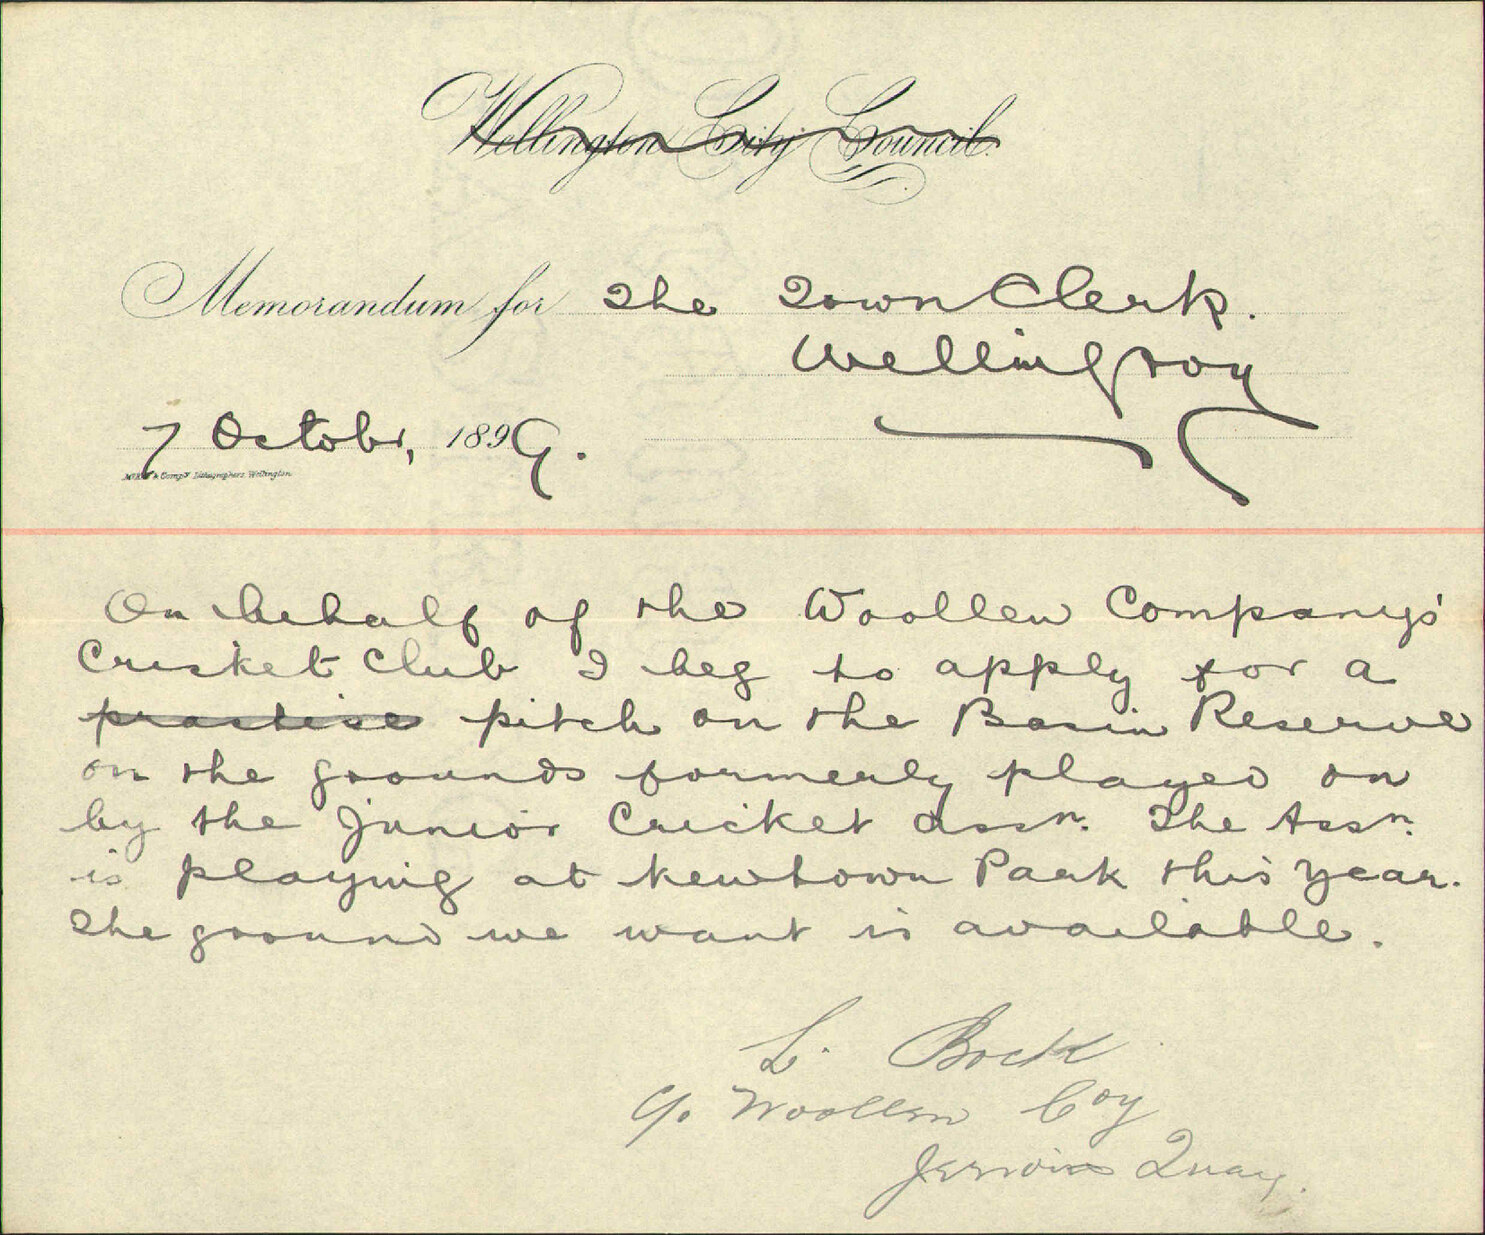 Wellington City Council.
Memorandum for The Town Clerk.
Wellington
7 October, 1899.
Lithographers Wellington
On behalf of the Woollen Company's
Cricket Club I beg to apply for a
practise pitch on the Basin Reserve
on the grounds formerly played on
by the Junior Cricket Assn. The Assn.
is playing at Newtown Park this year.
The ground we want is available.
L. Bock
c/o Woollen Coy
Jervois Quay.